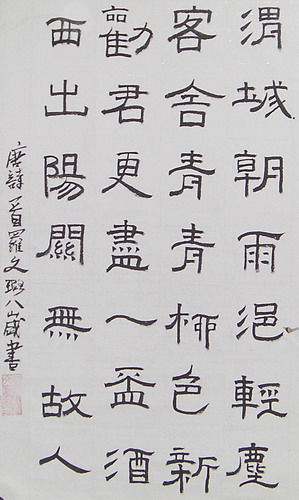 渭城朝雨浥輕塵
客舍青青柳色新
勸君更盡一盃酒
西出陽關無故人
唐詩一首羅文八歲書